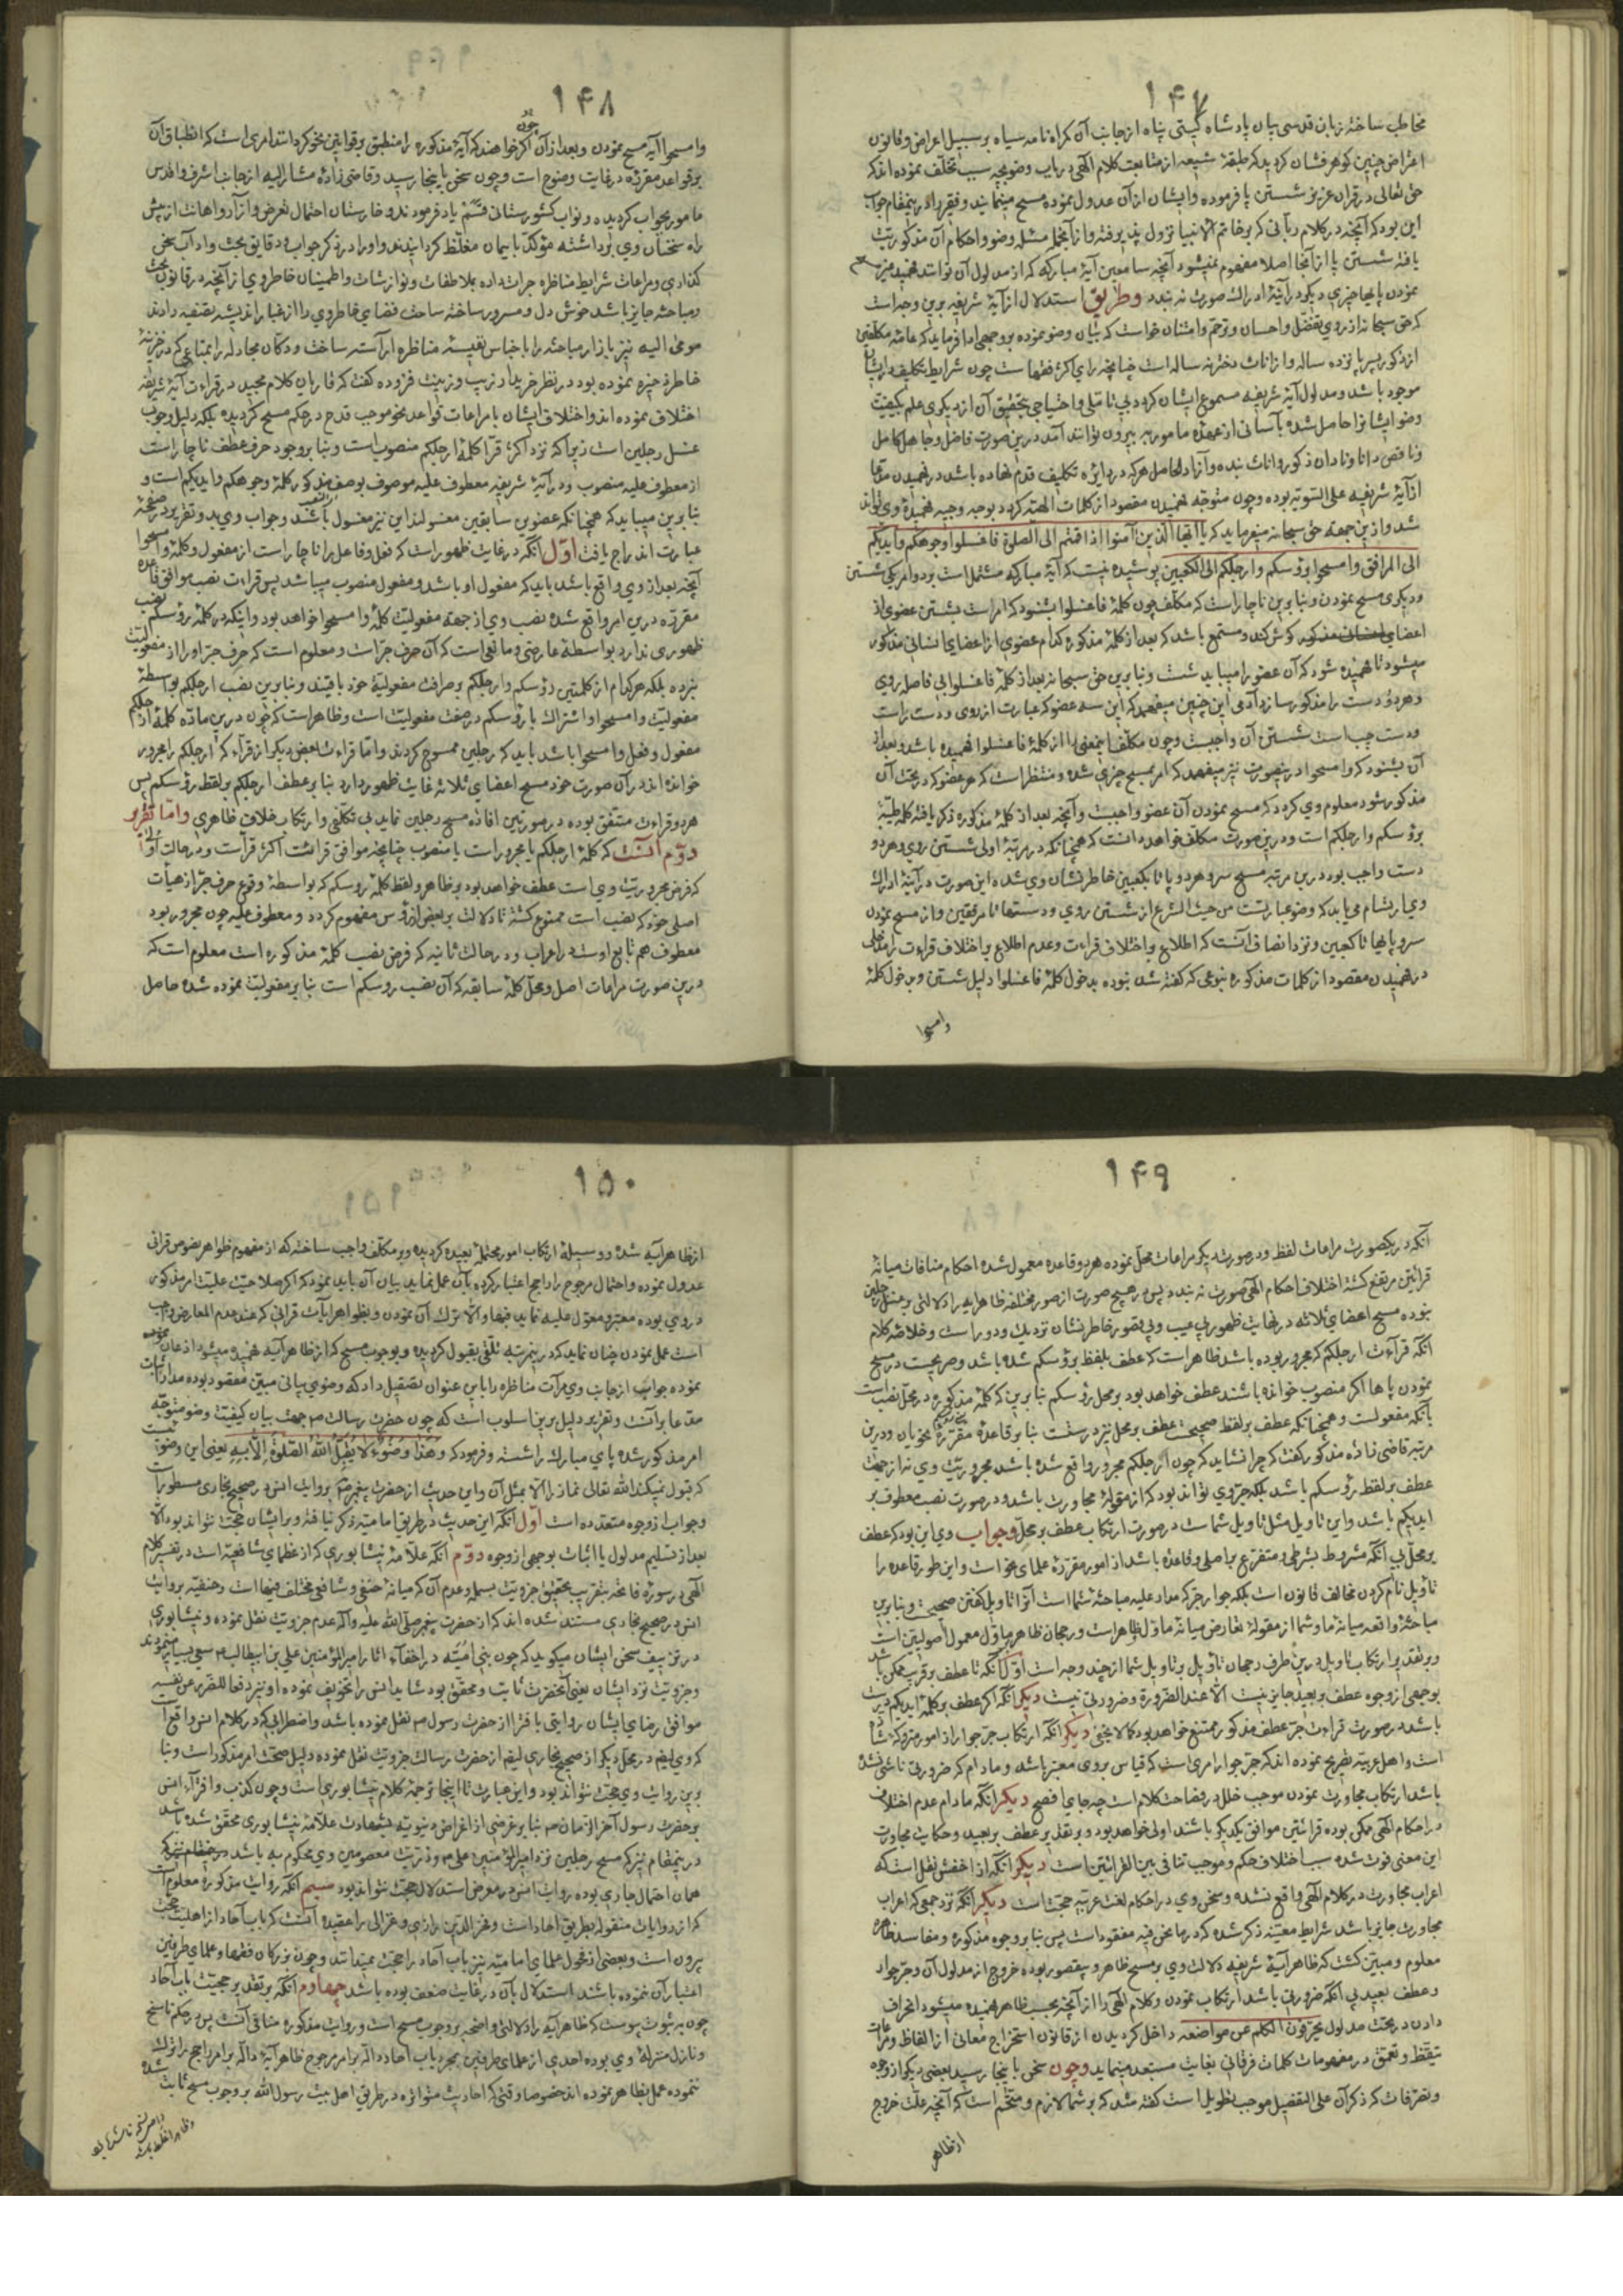 ۱۴۷
مخاطب ساخته زبان قدسی بیان پادشاه گیتی پناه از جانب آن گمراه نامه سیاه بر سبیل اعراض و قانون
اعتراض چنین گوهرفشان گردید که طبقهٔ شیعه از متابعت کلام الهی در باب وضو بچه سبب تخلف نموده اند که
حق تعالی در قرآن عزیز شستن پا فرموده و ایشان از آن عدول نموده مسح مینمایند و فقیر را در ینمقام جواب
این بود که آنچه در کلام ربانی که بر خاتم الانبیا نزول پذیرفته و از آنجمله مسئله وضو و احکام آن مذکوریت
یافته شستن پا از آنجا اصلا مفهوم نمیشود آنچه سامعین آیهٔ مبارکه که از مدلول آن توانند فهمید غیر مسح
نمودن پایها چیزی دیگر در آینهٔ ادراک صورت نه بندد و طریق استدلال از آیهٔ شریفه برین وجه است
که حق سبحانه از روی تفضل و احسان و ترحم و امتنان خواست که بیان وضو نموده بر وجهی ادا فرماید که عامهٔ مکلفین
از ذکور پسر پانزده ساله و از اناث دختر نه ساله است چنانچه رای اکثر فقهاست چون شرایط تکلیف در ایشان
موجود باشد و مدلول آیهٔ شریفه مسموع ایشان گردد بی تأملی و احتیاجی بتحقیق آن از دیگری علم بکیفیت
وضو ایشانرا حاصل شده بآسانی از عهدهٔ مامور به بیرون توانند آمد درین صورت فاضل و جاهل کامل
و ناقص دانا و نادان ذکور و اناث بنده و آزاد الحاصل هر که در دایرهٔ تکلیف قدم نهاده باشد در فهمیدن مدعا
از آیهٔ شریفه علی السویه بوده و چون متوجه فهمیدن مقصود از کلمات الهیه گردد بوجه وجیه فهمیدهٔ وی تواند
شد و ازین جهة حق سبحانه میفرماید که یا ایها الذین آمنوا اذا قمتم الی الصلوة فاغسلوا وجوهکم و ایدیکم
الی المرافق و امسحوا برؤسکم و ارجلکم الی الکعبین پوشیده نیست که آیهٔ مبارکه مشتمل است بر دو امر یکی شستن
و دیگری مسح نمودن و بنابرین ناچار است که مکلف چون کلمهٔ فاغسلوا بشنود که امر است بشستن عضوی از
اعضای انسان مذکور گوش کند و مستمع باشد که بعد از کلمهٔ مذکوره کدام عضوی از اعضای انسانی مذکور
میشود تا فهمیده شود که آن عضو را میباید شست و بنابرین حق سبحانه بعد از کلمهٔ فاغسلوا بی فاصله روی
و هر دو دست را مذکور سازد آدمی این چنین میفهمد که این سه عضو که عبارت از روی و دست راست
و دست چپ است شستن آن واجبست و چون مکلف اینمعنی را از کلمهٔ فاغسلوا فهمیده باشد و بعد از
آن بشنود که وامسحوا درینصورت نیز میفهمد که امر بمسح چیزی شده و منتظر است که هر عضو که در تحت آن
مذکور شود معلوم وی گردد که مسح نمودن آن عضو واجبست و آنچه بعد از کلمهٔ مذکوره ذکر یافته کلمه طیبهٔ
برؤسکم و ارجلکم است و درین صورت مکلف خواهد دانست که همچنانکه در مرتبهٔ اولی شستن روی و هر دو
دست واجب بود درین مرتبه مسح سر و هر دو پا تا بکعبین خاطرنشان وی شده این صورت در آینهٔ ادراک
وی ارتسام می یابد که وضو عبارتست من حیث الشرع از شستن روی و دستها تا مرفقین و از مسح نمودن
سر و پایها تا کعبین و نزد انصاف آنست که اطلاع باختلاف قراءت و عدم اطلاع باختلاف قراءت را مدخلی
در فهمیدن مقصود از کلمات مذکوره بنوعی که گفته شد نبوده بدخول کلمهٔ فاغسلوا دلیل شستن و بدخول کلمهٔ
وامسحوا
۱۴۸
وامسحوا آیه مسح نمودن و بعد از آن چون اگر خواهند که آیهٔ مذکوره را منطبق بر قوانین نحو گردانند امری است که انطباق آن
بر قواعد مقرره در غایت وضوح است و چون سخن باینجا رسید و قاضی زادهٔ مشار الیه از جانب اشرف اقدس
مامور بجواب گردیده و نواب کشورستانی قسم یاد فرمودند و خارستان احتمال تعرض و آزار و اهانت از پیش
راه سخنان وی برداشته مؤکد بایمان مغلظ گردانیدند و او را در ذکر جواب و دقایق بحث و داد آب سخن
گذاری و مراعات شرایط مناظره جرات داده بملاطفات و نوازشات و اطمینان خاطر وی از آنچه در قانون بحث
و مباحثه جایز باشد خوش دل و مسرور ساخته ساحت فضای خاطر وی را از غبار اندیشه تصفیه دادند
مومی الیه نیز بازار مباحثه را باجناس نفیسهٔ مناظره آراسته ساخت و دکان مجادله را بمتاعی که در خزینهٔ
خاطر ذخیره نموده بود در نظر خریدار زیب و زینت فزوده گفت که قاریان کلام مجید در قراءت آیهٔ شریفه
اختلاف نموده اند و اختلاف ایشان با مراعات قواعد نحو موجب قدح در حکم مسح گردیده بلکه دلیل وجوب
غسل رجلین است زیرا که نزد اکثر قرا کلمهٔ ارجلکم منصوب است و بنابر وجود حرف عطف ناچار است
از معطوف علیه منصوب و در آیهٔ شریفه معطوف علیه موصوف بوصف مذکور کلمهٔ وجوهکم و ایدیکم است و
بنابرین میباید که همچنانکه عضوین سابقین مغسولند این نیز مغسول باشد و جواب وی بدو تقریر در صفحهٔ
عبارت اندراج یافت اوّل آنکه در غایت ظهور است که فعل و فاعل را ناچار است از مفعول و کلمهٔ وامسحوا
آنچه بعد از وی واقع باشد باید که مفعول او باشد و مفعول منصوب میباشد پس قراءت نصب موافق قاعدهٔ
مقرره درین امر واقع شده نصب وی از جهة مفعولیت کلمهٔ وامسحوا خواهد بود و اینکه در کلمهٔ رؤسکم نصب
ظهوری ندارد بواسطهٔ عارضی و مانعی است که آن حرف جر است و معلوم است که حرف جر او را از مفعولیت
نبرده بلکه هر کدام از کلمتین رؤسکم و ارجلکم بر صرافت مفعولیة خود باقیند و بنابرین نصب ارجلکم بواسطهٔ
مفعولیت وامسحوا و اشتراک با رؤسکم در صفت مفعولیت است و ظاهر است که چون درین ماده کلمهٔ ارجلکم
مفعول و فعل وامسحوا باشد باید که رجلین ممسوح گردند و اما قراءت بعض دیگر از قرّاء که ارجلکم را مجرور
خوانده اند در آن صورت خود مسح اعضای ثلاثه غایت ظهور دارد بنابر عطف ارجلکم بر لفظ رؤسکم پس
هر دو قراءت متفق بوده در صورتین افاده مسح رجلین نماید بی تکلفی و ارتکاب خلاف ظاهری و امّا تقریر
دوّم آنست که کلمهٔ ارجلکم یا مجرور است یا منصوب چنانچه موافق قرائت اکثر قرّاست و در حالت اولی
که فرض مجروریت وی است عطف خواهد بود بر ظاهر و لفظ کلمهٔ رؤسکم که بواسطهٔ وقوع حرف جر از هیأت
اصلی خود که نصب است ممنوع گشته تا دلالت بر بعض از رؤس مفهوم گردد و معطوف علیه چون مجرور بود
معطوف هم تابع اوست در اعراب و در حالت ثانیه که فرض نصب کلمهٔ مذکوره است معلوم است که
درین صورت مراعات اصل و محل کلمهٔ سابقه که آن نصب رؤسکم است بنابر مفعولیت نموده شده حاصل
۱۴۹
آنکه در یکصورت مراعات لفظ و در صورت دیگر مراعات محل نموده هر دو قاعده معمول شده احکام منافات میانهٔ
قرائتین مرتفع گشته اختلاف احکام الهی صورت نه بندد پس در هیچ صورت از صور مختلفه ظاهر آیه را دلالتی بر غسل رجلین
نبوده مسح اعضای ثلاثه در نهایت ظهور بی عیب و بی قصور خاطرنشان نزدیک و دور است و خلاصهٔ کلام
آنکه قراءت ارجلکم که مجرور بوده باشد ظاهر است که عطف بلفظ برؤسکم شده باشد و صریحیست در مسح
نمودن پاها اگر منصوب خوانده باشند عطف خواهد بود بر محل رؤسکم بنابرین که کلمهٔ مذکوره در محل نصب است
بآنکه مفعولست و همچنانکه عطف بر لفظ صحیحست عطف بر محل نیز درستست بنابر قاعدهٔ مقررهٔ نحویان و درین
مرتبه قاضی زادهٔ مذکور گفت که چرا نشاید که چون ارجلکم مجرور واقع شده باشد مجروریت وی نه از جهت
عطف بر لفظ رؤسکم باشد بلکه جر وی تواند بود که از مقولهٔ مجاورت باشد و در صورت نصب معطوف بر
ایدیکم باشد و این تاویل مثل تاویل شماست در صورت ارتکاب عطف بر محل و جواب وی این بود که عطف
بر محل بی آنکه مشروط بشرطی و متفرع بر اصلی و قاعده باشد از امور مقررهٔ علمای نحو است و این طور قاعده را
تاویل نام کردن مخالف قانون است بلکه جوار جر که مدار علیه مباحثهٔ شماست آنرا تاویل گفتن صحیحست و بنابرین
مباحثهٔ واقعه میانهٔ ما و شما از مقولهٔ تعارض میانهٔ ماوّل و ظاهر است و رجحان ظاهر بر ماوّل معمول اصولیین است
و بر تقدیر ارتکاب تاویل درین طرف رجحان تاویل بر تاویل شما از چند وجه است اوّل آنکه تا عطف بر قریب ممکن باشد
بوجهی از وجوه عطف بر بعید جایز نیست الا عند الضرورة و ضرورتی نیست دیگر آنکه اگر عطف بر کلمهٔ ایدیکم درست
باشد در صورت قراءت جر عطف مذکور ممتنع خواهد بود کما لا یخفی دیگر آنکه ارتکاب جر جوار از امور متروکهٔ شاذه
است و اهل عربیه تصریح نموده اند که جر جوار امری است که قیاس بر وی معتبر نباشد و مادام که ضرورتی ناشی نشده
باشد ارتکاب مجاورت نمودن موجب خلل در فصاحت کلام است چه جای افصح دیگر آنکه مادام عدم اختلاف
در احکام الهی ممکن بوده قرائتین موافق یکدیگر باشند اولی خواهد بود و بر تقدیر عطف بر بعید و حکایت مجاورت
این معنی فوت شده سبب اختلاف حکم و موجب تنافی بین القرائتین است دیگر آنکه از اخفش نقل است که
اعراب مجاورت در کلام الهی واقع نشده و سخن وی در احکام لغت عربیه حجتست دیگر آنکه نزد جمعی که اعراب
مجاورت جایز باشد شرایط معینه ذکر شده که در ما نحن فیه مفقود است پس بنابر وجوه مذکوره و مفاسد ظاهره
معلوم و مبین گشت که ظاهر آیهٔ شریفه دلالت وی بر مسح ظاهر و بیقصور بوده خروج از مدلول آن و جر جوار
و عطف بعید بی آنکه ضرورتی باشد ارتکاب نمودن و کلام الهی را از آنچه بحسب ظاهر فهمیده میشود انحراف
دادن در تحت مدلول یحرفون الکلم عن مواضعه داخل گردیدن از قانون استخراج معانی از الفاظ و مراعات
تیقظ و تعمق در مفهومات کلمات فرقانی بغایت مستبعد مینماید و چون سخن باینجا رسید بعضی دیگر از وجوه
و تصرفات که ذکر آن علی التفصیل موجب تطویل است گفته شد که بر شما لازم و متحتم است که آنچه علت خروج
از ظاهر
۱۵۰
از ظاهر آیه شده و وسیلهٔ ارتکاب امور محتملهٔ بعیده گردیده و بر مکلف واجب ساخته که از مفهوم ظواهر نصوص قرآنی
عدول نموده و احتمال مرجوح را راجح اعتبار کرده بآن عمل نماید بیان آن باید نمود که اگر صلاحیت علیت امر مذکور
در وی بوده معتبر و معول علیه نماید فبها و الا ترک آن نمودن و بظواهر آیات قرآنی که عند عدم المعارض واجب
است عمل نمودن چنان نماید که درینمرتبه تلقی بقبول گردیده و بوجوب مسح که از ظاهر آیه فهمیده میشود اذعان نموده
نموده جواب از جانب وی مرآت مناظره را باین عنوان تصقیل داد که وضوی بیانی مبین مقصود بوده مدار اثبات
مدعا بر آنست و تقریر دلیل برین اسلوب است که چون حضرت رسالت ص جهت بیان کیفیت وضو متوجه
امر مذکور شده پای مبارک را شست و فرمود که و هذا وضوء لا یقبل الله الصلوة الا به یعنی این وضوئیست
که قبول نمیکند الله تعالی نماز را الا بمثل آن و این حدیث از حضرت پیغمبر ص بروایت انس در صحیح بخاری مسطور است
و جواب از وجوه متعدده است اوّل آنکه این حدیث در طریق امامیه ذکر نیافته و بر ایشان حجت نتواند بود الا
بعد از تسلیم مدلول یا اثبات بوجهی از وجوه دوّم آنکه علامهٔ نیشابوری که از عظمای شافعیه است در تفسیر کلام
الهی در سورهٔ فاتحه بتقریب تحقیق جزویت بسمله و عدم آن که میانهٔ حنفی و شافعی مختلف فیهاست و حنفیه بروایت
انس در صحیح بخاری مستند شده اند که از حضرت پیغمبر صلی الله علیه و آله عدم جزویت نقل نموده و نیشابوری
در تزییف سخن ایشان میگوید که چون بنی امیه در اخفآء آثار امیر المؤمنین علی بن ابیطالب ع سعی بسیار مینمودند
و جزویت نزد ایشان یعنی آنحضرت ثابت و محقق بود شاید انس را تخویف نموده او نیز دفعا للضرر عن نفسه
موافق رضای ایشان روایتی بافترا از حضرت رسول ص نقل نموده باشد و اضطرابی که در کلام انس واقع است
که وی ایضا در محل دیگر از صحیح بخاری ایضا از حضرت رسالت جزویت نقل نموده دلیل صحت امر مذکور است و بنا
برین روایت وی حجت نتواند بود و این عبارت تا اینجا ترجمهٔ کلام نیشابوری است و چون کذب و افترآء انس
بر حضرت رسول آخر الزمان ص بنابر غرضی از اغراض دنیویه بشهادت علامهٔ نیشابوری محقق شده باشد
درینمقام نیز که مسح رجلین نزد امیر المؤمنین علی ع و ذریت معصومین وی محکوم به باشد درینمقام نیز که
همان احتمال جاری بوده روایت انس در معرض استدلال حجت نتواند بود سیّم آنکه روایت مذکوره معلوم است
که از روایات منقوله بطریق آحاد است و فخر الدین رازی و غزالی را عقیده آنست که باب آحاد از اهلیت حجت
بیرون است و بعضی از فحول علمای امامیه نیز باب آحاد را حجت نمیدانند و چون بزرگان فقها و علمای طرفین
اعتبار آن ننموده باشند استدلال بآن در غایت ضعف بوده باشد چهارم آنکه بر تقدیر حجیت باب آحاد
چون به ثبوت پیوست که ظاهر آیه را دلالتی واضحه بر وجوب مسح است و روایت مذکوره منافی آنست پس در حکم ناسخ
و نازل منزلهٔ وی بوده احدی از علمای طرفین بمجرد باب آحاد دالّه بر امر مرجوح ظاهر آیهٔ دالّه بر امر راجح را ترک
ننموده عمل بظاهر نموده اند خصوصا وقتی که احادیث متواتره در طریق اهل بیت رسول الله بر وجوب مسح ثابت شده